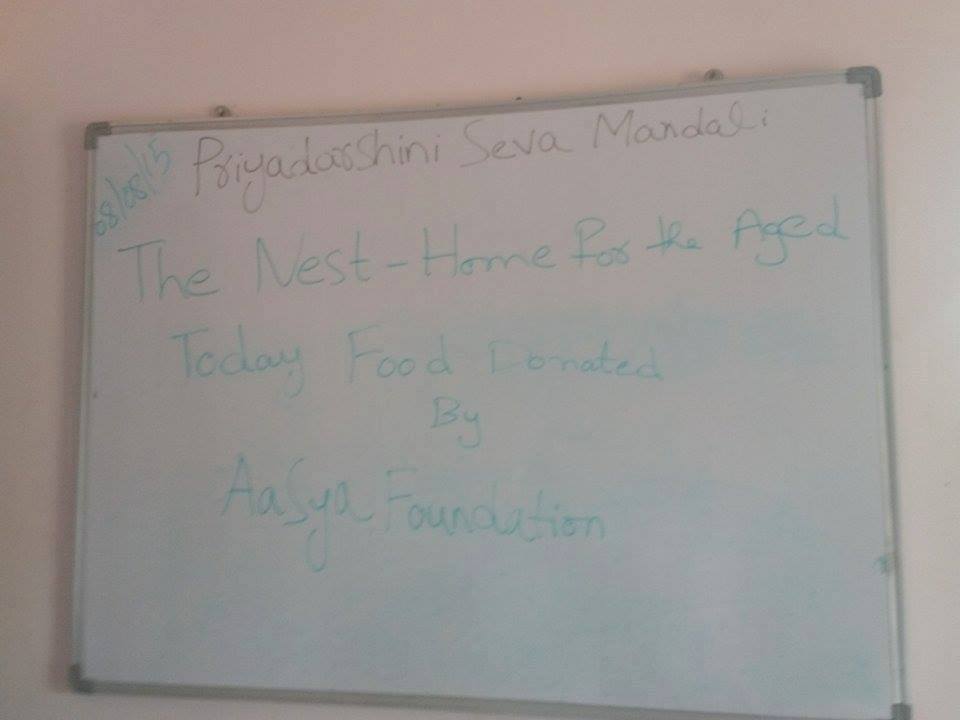 08/08/15
Priyadarshini Seva Mandali
The Nest - Home For the Aged
Today Food Donated
By
Aasya Foundation